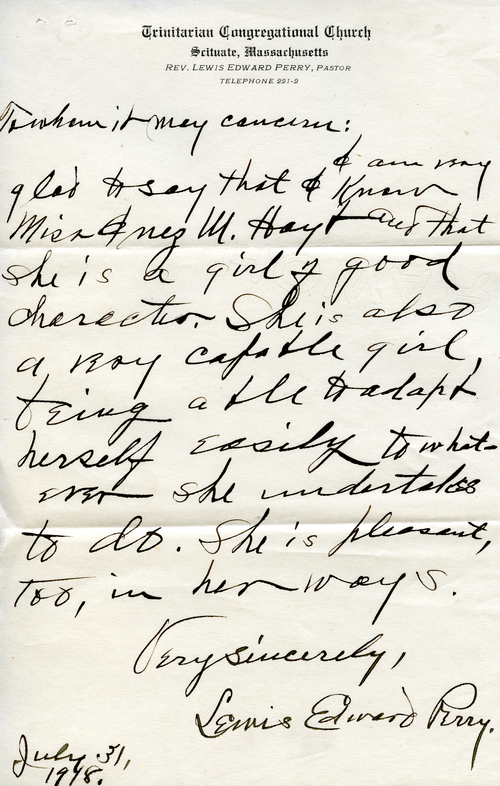 Trinitarian Congregational Church
Scituate, Massachusetts
REV. LEWIS EDWARD PERRY, PASTOR
TELEPHONE 221-2
To whom it may concern:
I am very
glad to say that I know
Miss Inez M. Hayt and that
she is a girl of good
character. She is also
a very capable girl,
being able to adapt
herself easily to what-
ever she undertakes
to do. She is pleasant,
too, in her ways.
Very sincerely,
Lewis Edward Perry.
July 31,
1918.